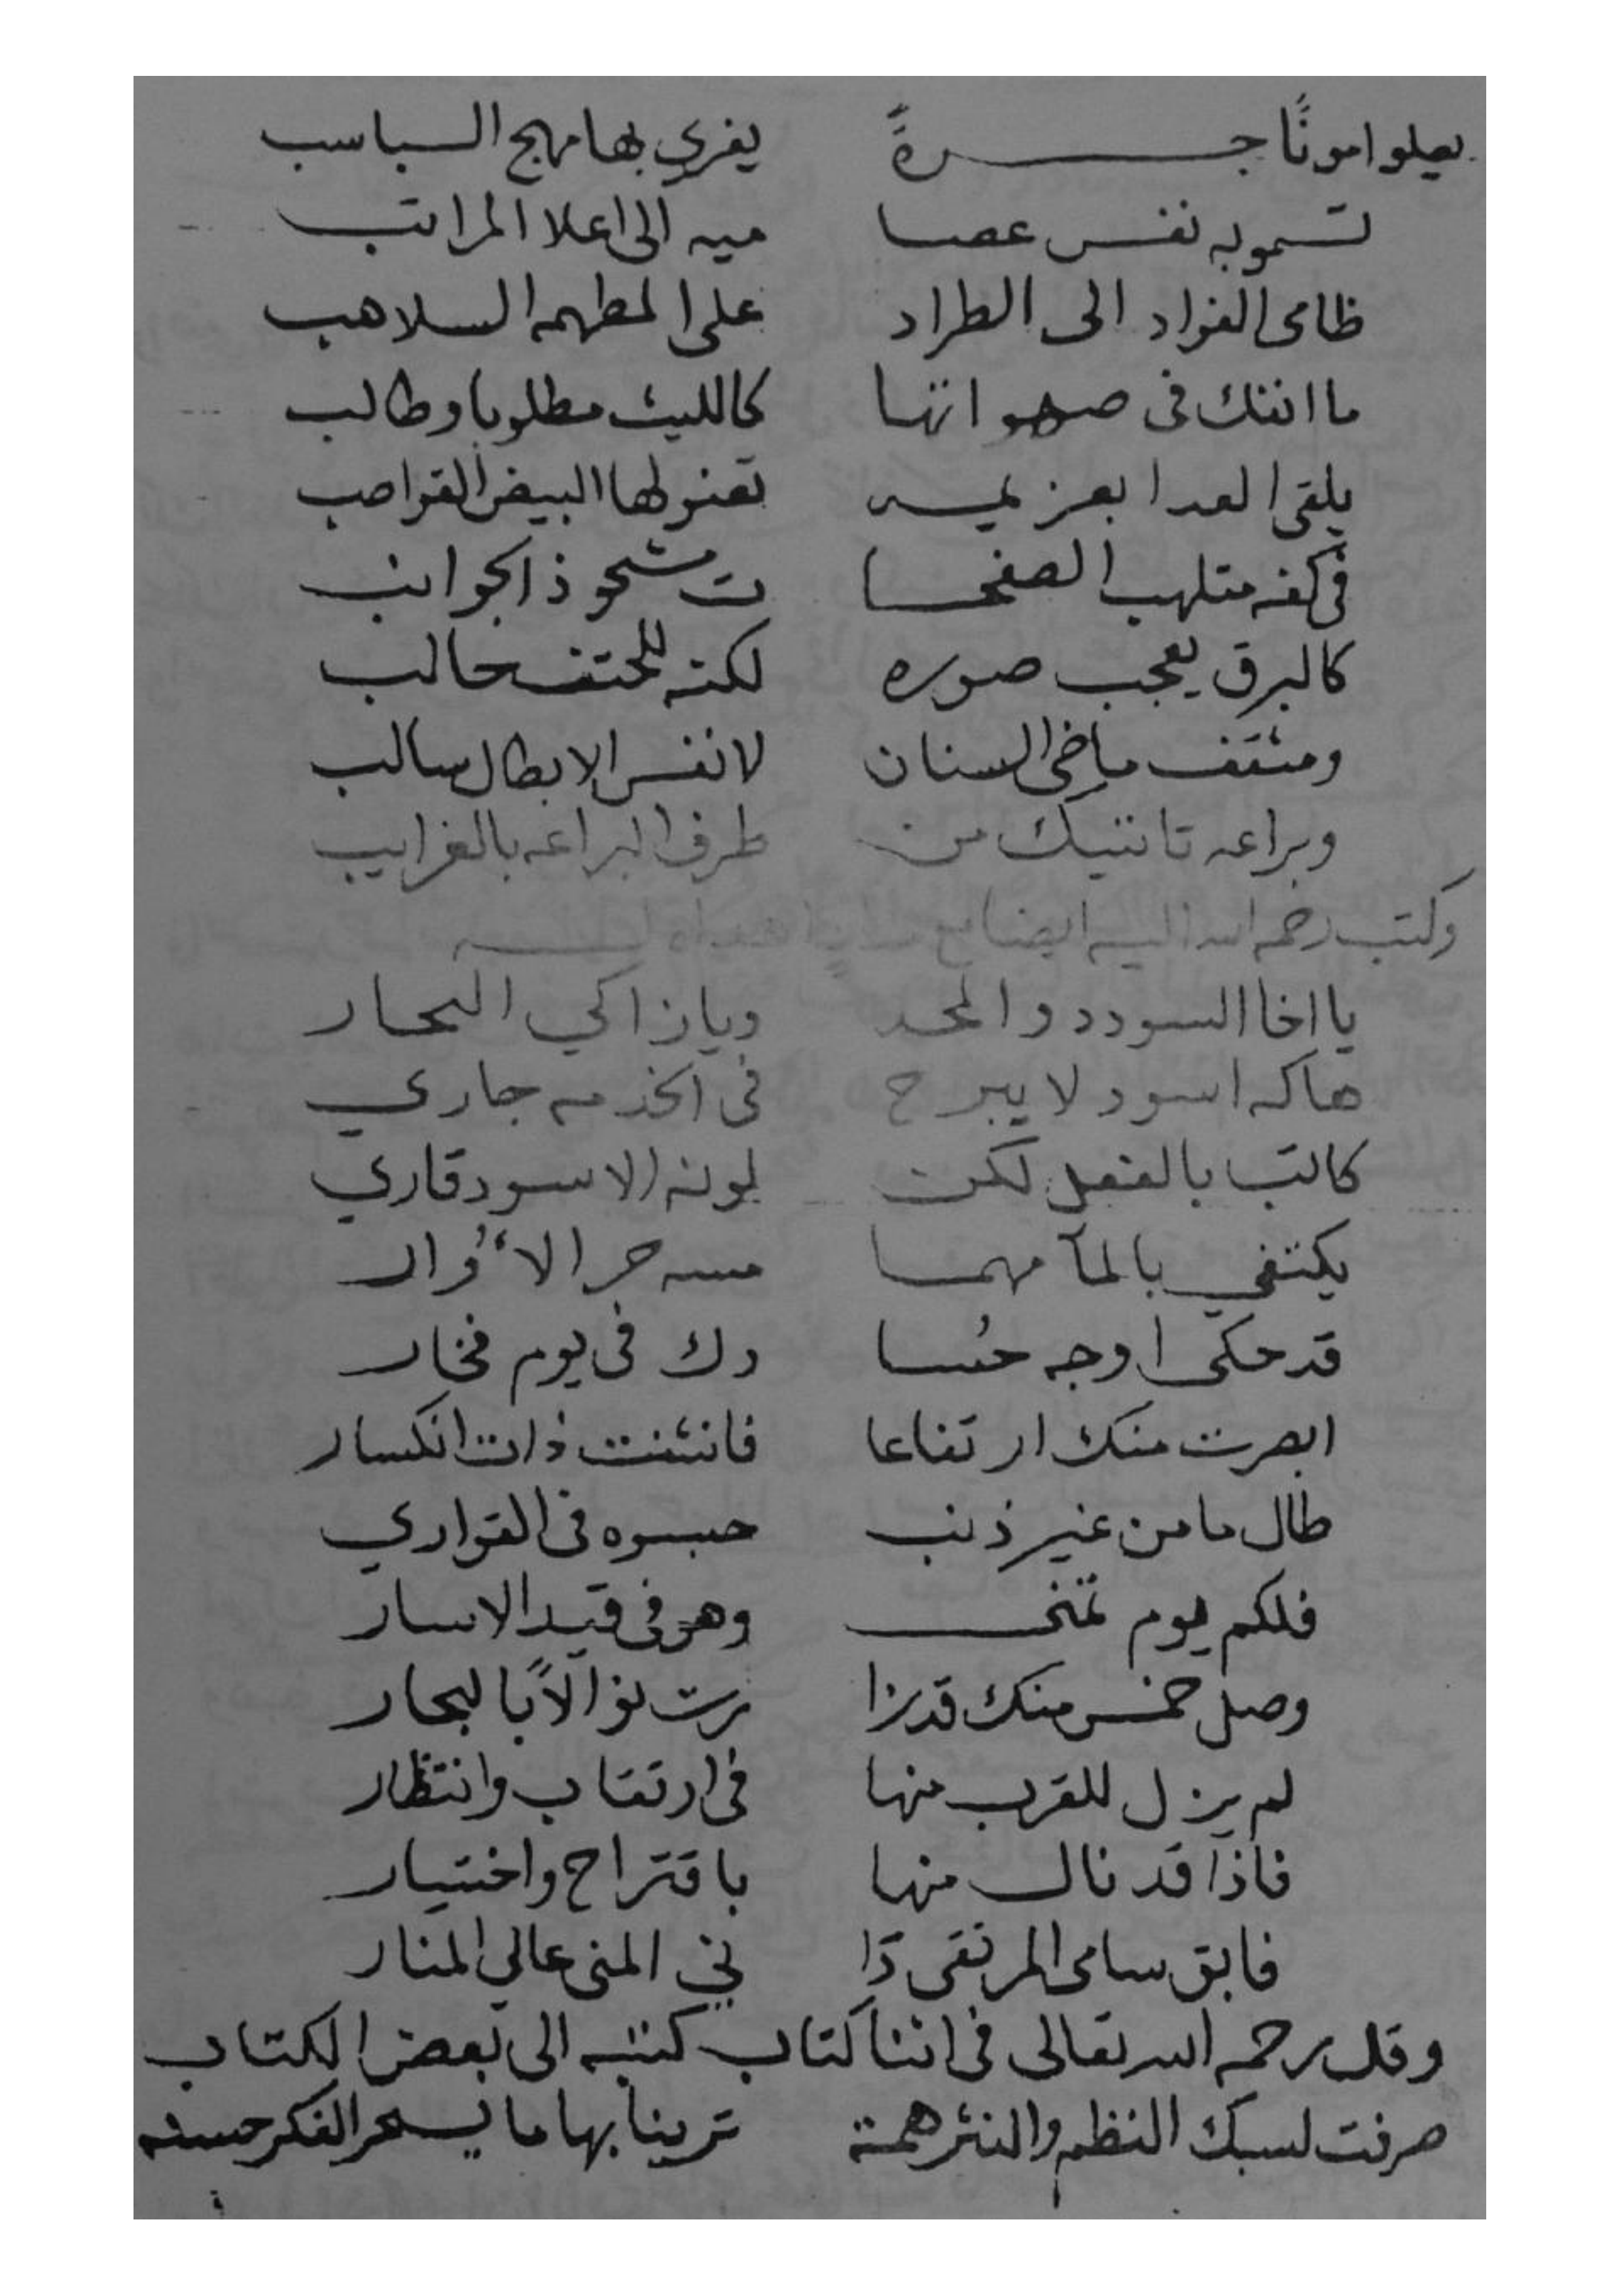 يعلوا امونًا جسرةً يفري بها مهج السباسب
تسموبه نفس عصا ميه الى اعلا المراتب
ظامى الفواد الى الطراد على المطهمه السلاهب
ما انفك فى صهواتها كالليث مطلوبا وطالب
يلقى العدا بعزيمه تعنو لها البيض القواضب
فى كفه متلهب الصفحا ت مشحوذ الجوانب
كالبرق يعجب صوره لكنه للحتف جالب
ومثقف ماضى السنان لانفس الابطال سالب
وبراعه تاتيك من طرف البراعه بالغرايب
وكتب رحمه الله اليه ايضا مع
يا اخا السودد والمجد ويا زاكي النجار
هاكه اسود لا يبرح فى الخدمه جاري
كاتب بالفعل لكن لونه الاسود قاري
يكتفي بالمآ مهما مسه حر الأُوار
قد حكى اوجه حُسا دك فى يوم فخار
ابصرت منك ارتفاعا فانثنت ذات انكسار
طال ما من غير ذنب حبسوه فى القواري
فلكم يوم تمنى وهو فى قيد الاسار
وصل خمس منك قد زا رت نوالاً بالبحار
لم يزل للقرب منها فى ارتقاب وانتظار
فاذا قد نال منها باقتراح واختيار
فابق سامى المرتقى دَا ني المنى عالي المنار
وقال رحمه الله تعالى فى اثنا كتاب كتبه الى بعض الكتاب
صرفت لسبك النظم والنثر همة ترينا بها ما يسحر الفكر حسنه